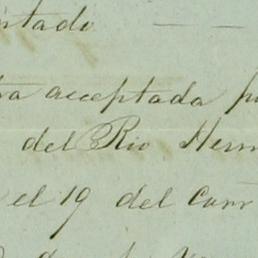 ntado
ra acceptada p
del Rio Herm
el 19 del corr